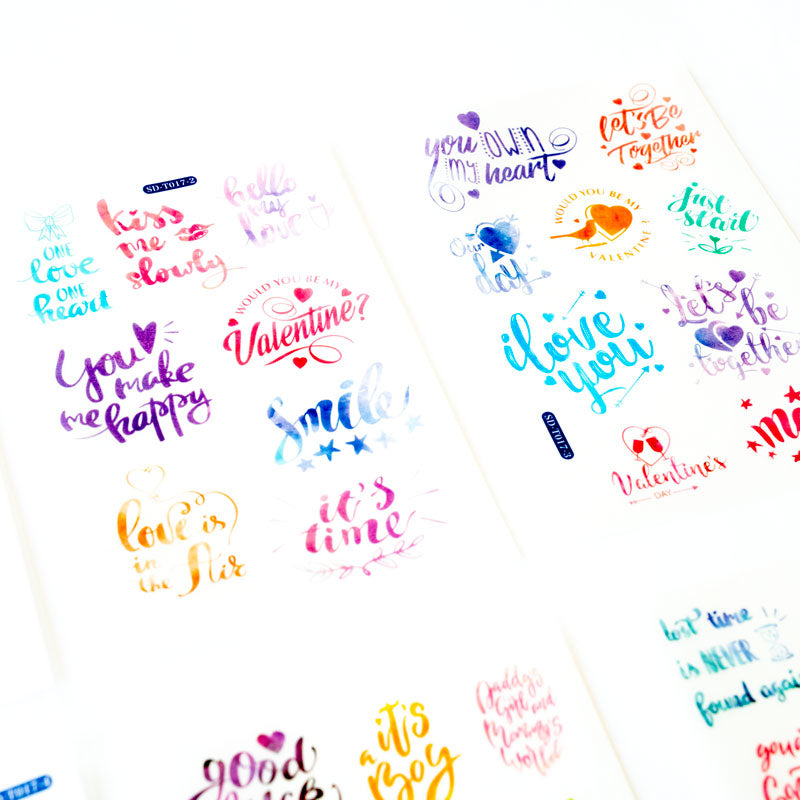 SD-T017-2
ONE
love
ONE
heart
kiss
me
slowly
hello
my
love
You
make
me happy
WOULD YOU BE MY
Valentine?
Smile
love is
in
the Air
it's
time
you OWN
MY heart
let's Be
Together
Our
day
WOULD YOU BE MY
VALENTINE?
just
start
i love
you
Let's be
together
SD-T017-3
Valentine's
DAY
good
luck
it's
a Boy
Daddy's
Girl and
Mommy's
World
lost time
is NEVER
found again